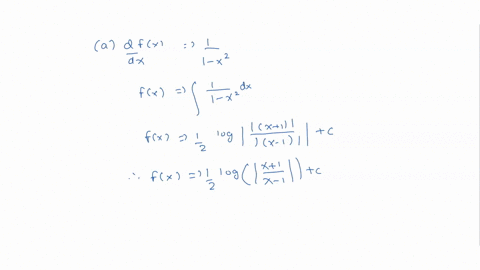 (a) d/dx f(x) => 1/(1-x²)
f(x) => ∫ 1/(1-x²) dx
f(x) => 1/2 log | |(x+1)| / |(x-1)| | + c
∴ f(x) => 1/2 log(|(x+1)/(x-1)|) + c